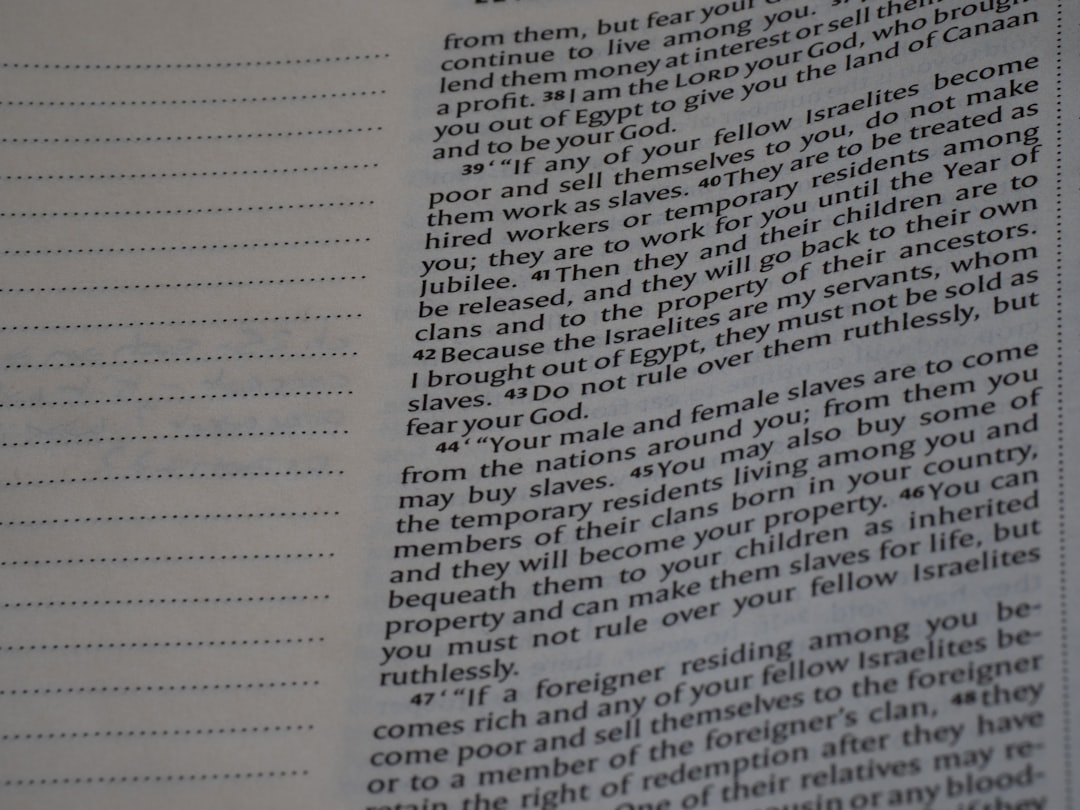 from them, but fear your
continue to live among you. 37
lend them money at interest or sell them
a profit. 38 I am the LORD your God, who brought
you out of Egypt to give you the land of Canaan
and to be your God.
39 ‘ “If any of your fellow Israelites become
poor and sell themselves to you, do not make
them work as slaves. 40 They are to be treated as
hired workers or temporary residents among
you; they are to work for you until the Year of
Jubilee. 41 Then they and their children are to
be released, and they will go back to their own
clans and to the property of their ancestors.
42 Because the Israelites are my servants, whom
I brought out of Egypt, they must not be sold as
slaves. 43 Do not rule over them ruthlessly, but
fear your God.
44 ‘ “Your male and female slaves are to come
from the nations around you; from them you
may buy slaves. 45 You may also buy some of
the temporary residents living among you and
members of their clans born in your country,
and they will become your property. 46 You can
bequeath them to your children as inherited
property and can make them slaves for life, but
you must not rule over your fellow Israelites
ruthlessly.
47 ‘ “If a foreigner residing among you be-
comes rich and any of your fellow Israelites be-
come poor and sell themselves to the foreigner
or to a member of the foreigner’s clan, 48 they
retain the right of redemption after they have
One of their relatives may re-
cousin or any blood-